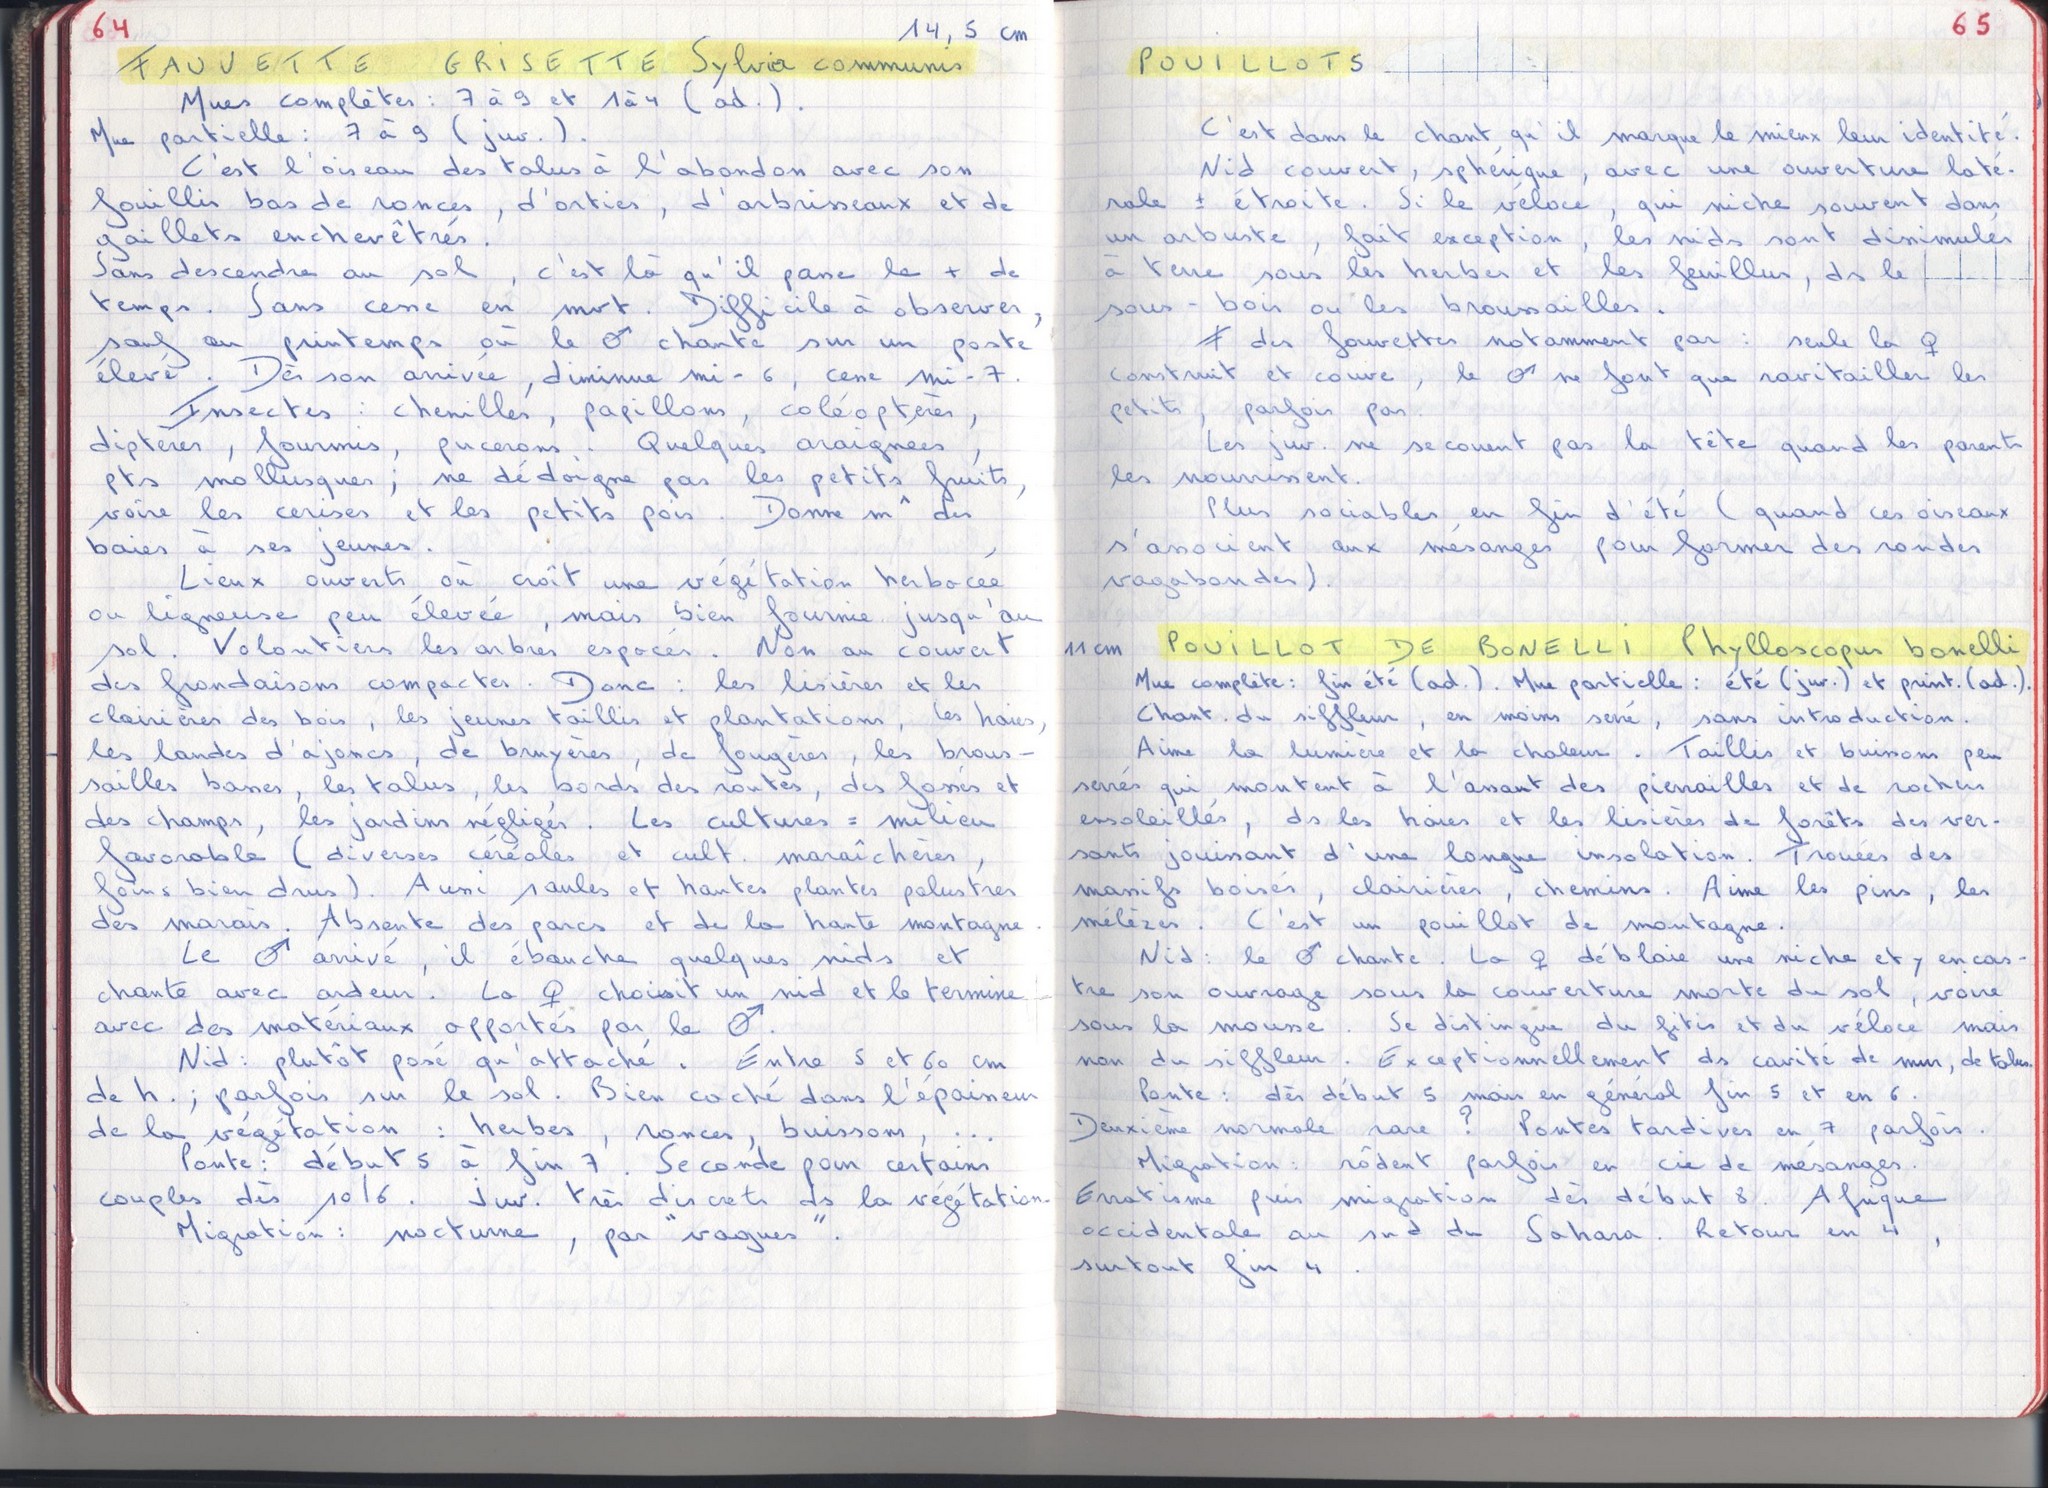 64
14,5 cm
FAUVETTE GRISETTE Sylvia communis
Mues complètes : 7 à 9 et 1 à 4 (ad.).
Mue partielle : 7 à 9 (juv.).
C'est l'oiseau des talus à l'abandon avec son
fouillis bas de ronces, d'orties, d'arbrisseaux et de
gaillets enchevêtrés.
Sans descendre au sol, c'est là qu'il passe le + de
temps. Sans cesse en mvt. Difficile à observer,
sauf au printemps où le ♂ chante sur un poste
élevé. Dès son arrivée, diminue mi-6, cesse mi-7.
Insectes : chenilles, papillons, coléoptères,
diptères, fourmis, pucerons. Quelques araignées,
pts mollusques ; ne dédaigne pas les petits fruits,
voire les cerises et les petits pois. Donne m^ des
baies à ses jeunes.
Lieux ouverts où croît une végétation herbacée
ou ligneuse peu élevée, mais bien fournie jusqu'au
sol. Volontiers les arbres espacés. Non au couvert
des frondaisons compactes. Donc : les lisières et les
clairières des bois, les jeunes taillis et plantations, les haies,
les landes d'ajoncs, de bruyères, de fougères, les brous-
sailles basses, les talus, les bords des routes, des fossés et
des champs, les jardins négligés. Les cultures = milieu
favorable (diverses céréales et cult. maraîchères,
foins bien drus). Aussi saules et hautes plantes palustres
des marais. Absente des parcs et de la haute montagne.
Le ♂ arrivé, il ébauche quelques nids et
chante avec ardeur. La ♀ choisit un nid et le termine
avec des matériaux apportés par le ♂.
Nid : plutôt posé qu'attaché. Entre 5 et 60 cm
de h. ; parfois sur le sol. Bien caché dans l'épaisseur
de la végétation : herbes, ronces, buissons, ...
Ponte : début 5 à fin 7. Seconde pour certains
couples dès 10/6. Juv. très discrets ds la végétation.
Migration : nocturne, par "vagues".
65
POUILLOTS
C'est dans le chant qu'il marque le mieux leur identité.
Nid couvert, sphérique, avec une ouverture laté-
rale ± étroite. Si le véloce, qui niche souvent dans
un arbuste, fait exception, les nids sont dissimulés
à terre sous les herbes et les feuilles, ds le
sous-bois ou les broussailles.
≠ des fauvettes notamment par : seule la ♀
construit et couve, le ♂ ne font que ravitailler les
petits, parfois pas.
Les juv. ne secouent pas la tête quand les parents
les nourrissent.
Plus sociables en fin d'été (quand ces oiseaux
s'associent aux mésanges pour former des rondes
vagabondes).
11 cm POUILLOT DE BONELLI Phylloscopus bonelli
Mue complète : fin été (ad.). Mue partielle : été (juv.) et print. (ad.).
Chant du siffleur, en moins serré, sans introduction.
Aime la lumière et la chaleur. Taillis et buissons peu
serrés qui montent à l'assaut des pierrailles et de rochers
ensoleillés, ds les haies et les lisières de forêts des ver-
sants jouissant d'une longue insolation. Trouées des
massifs boisés, clairières, chemins. Aime les pins, les
mélèzes. C'est un pouillot de montagne.
Nid : le ♂ chante. La ♀ déblaie une niche et y encas-
tre son ouvrage sous la couverture morte du sol, voire
sous la mousse. Se distingue du fitis et du véloce mais
non du siffleur. Exceptionnellement ds cavité de mur, de talus.
Ponte : dès début 5 mais en général fin 5 et en 6.
Deuxième normale rare ? Pontes tardives en 7 parfois.
Migration : rôdent parfois en cie de mésanges.
Erratisme puis migration dès début 8. Afrique
occidentale au sud du Sahara. Retour en 4,
surtout fin 4.